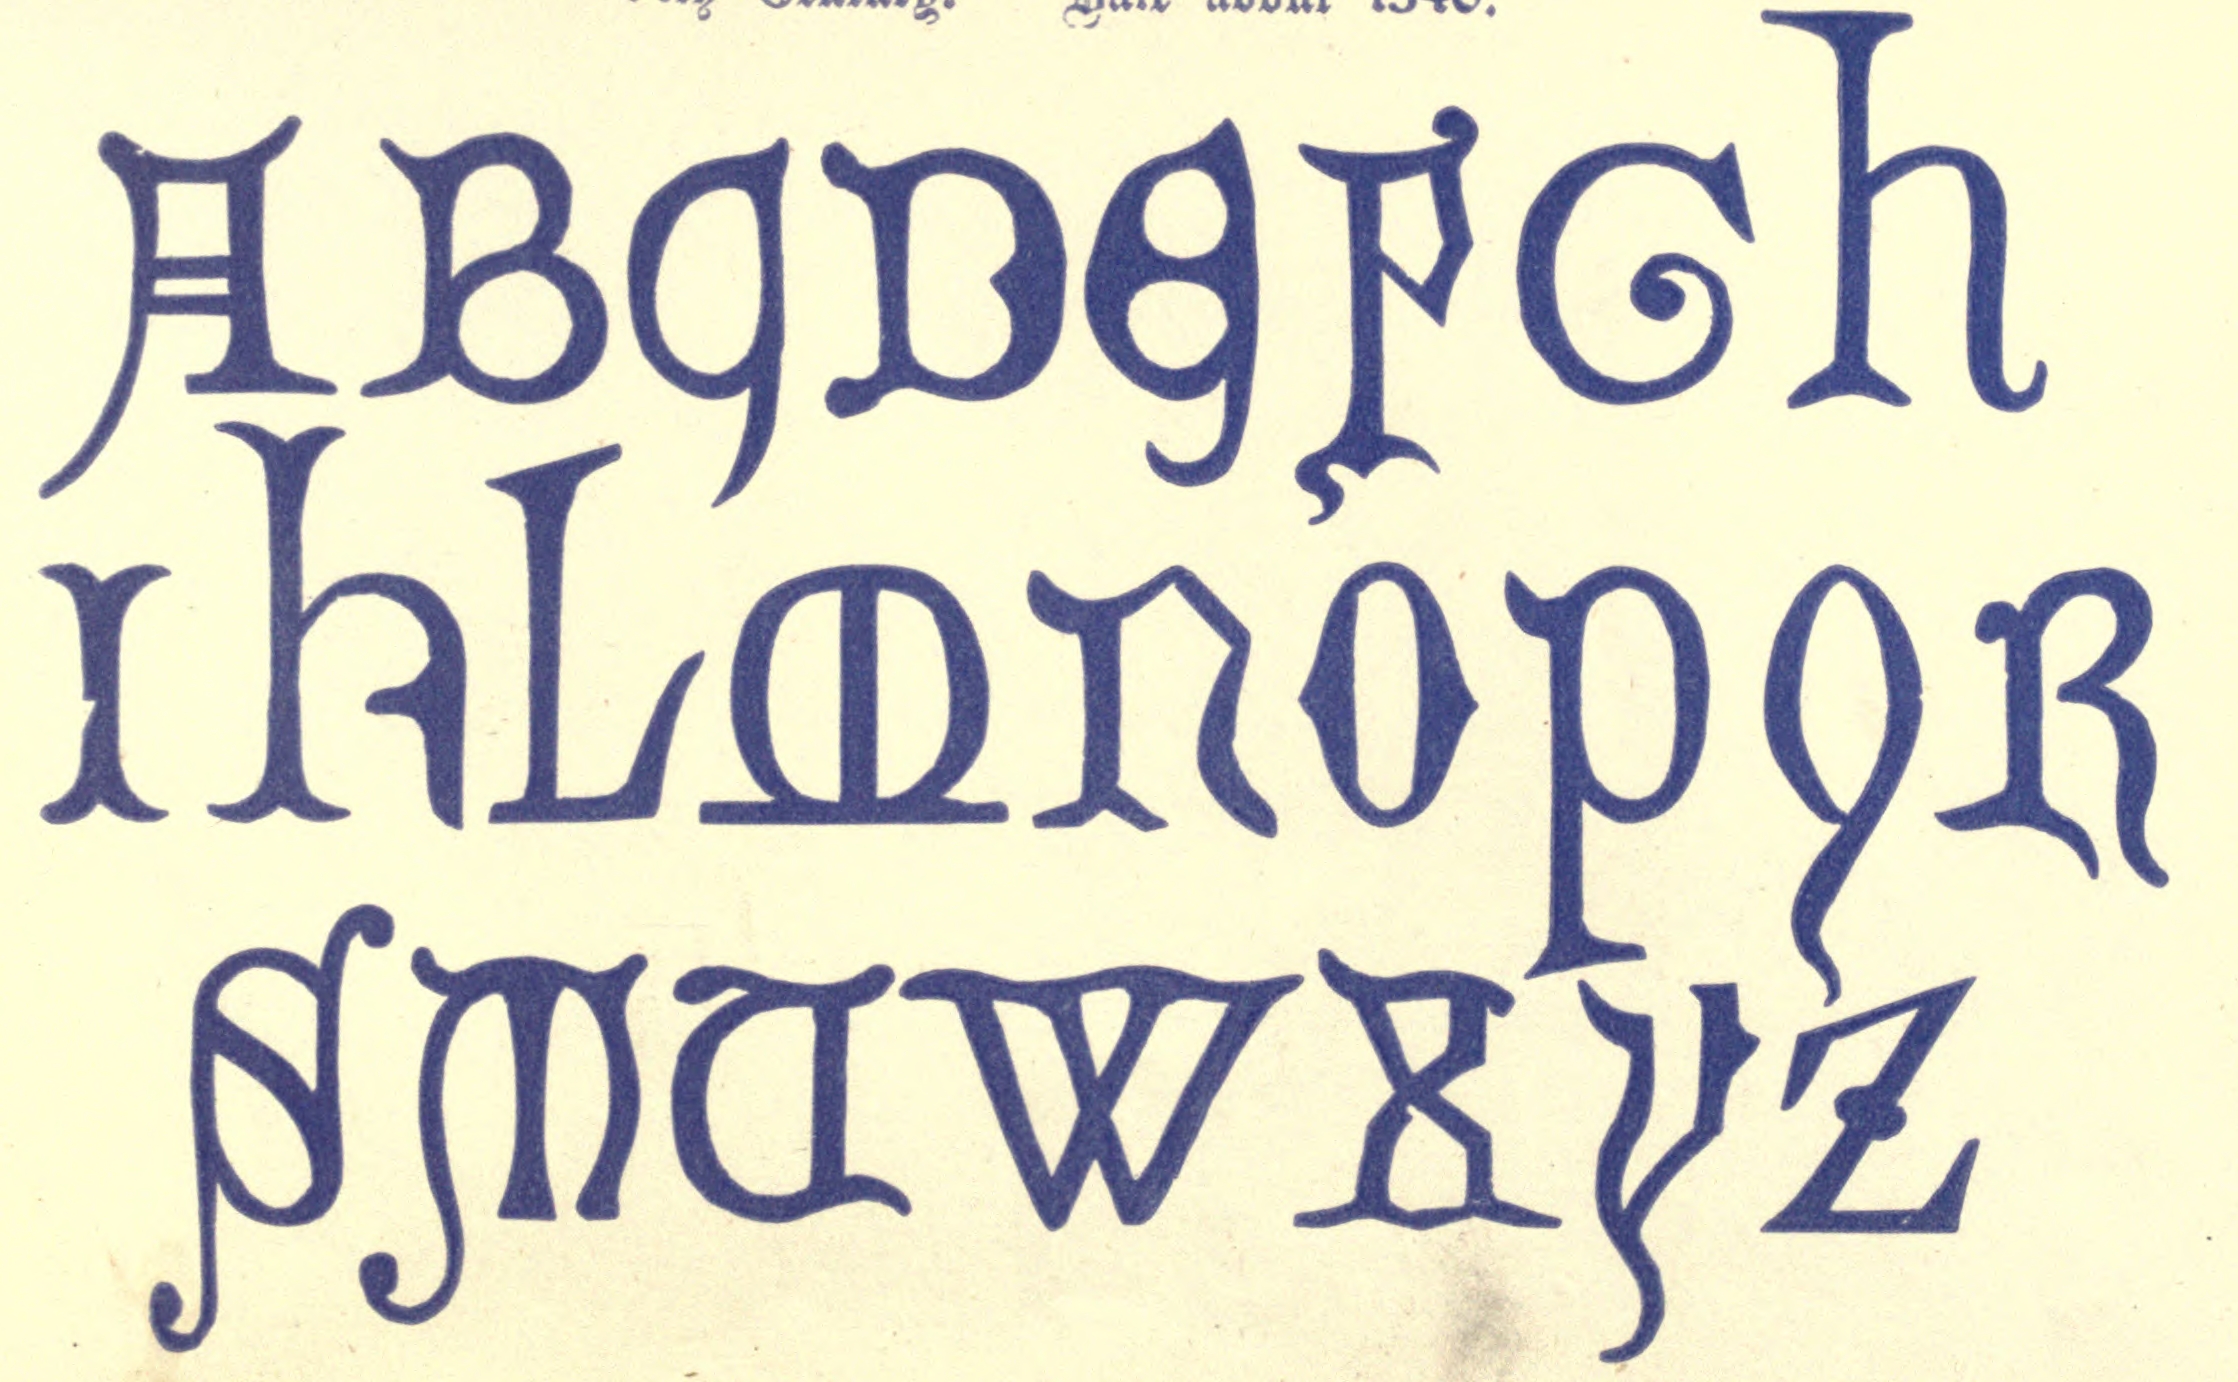 Century. Date about 1340.
A B C D E F G H
I K L M N O P Q R
S T U W X Y Z